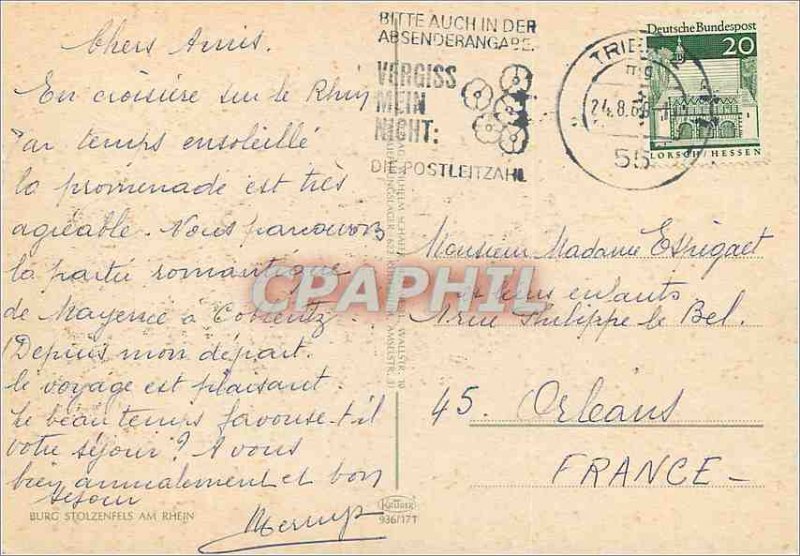 Chers Amis.
En croisière sur le Rhin
Par temps ensoleillé
la promenade est très
agréable. Nous parcourons
la partie romantique
de Mayence à Coblentz.
Depuis mon départ
le voyage est plaisant.
Le beau temps favorise-t-il
votre séjour? A vous
bien amicalement et bon
séjour
BURG STOLZENFELS AM RHEIN
BITTE AUCH IN DER
ABSENDERANGABE.
VERGISS
MEIN
NICHT:
DIE POSTLEITZAHL
TRIER
mg
24.8.6
55
Deutsche Bundespost
20
LORSCH/HESSEN
CPAPHIL
Monsieur Madame
et leurs enfants
1 rue Philippe le Bel.
45. Orléans
FRANCE-
KRÜGER
936/171